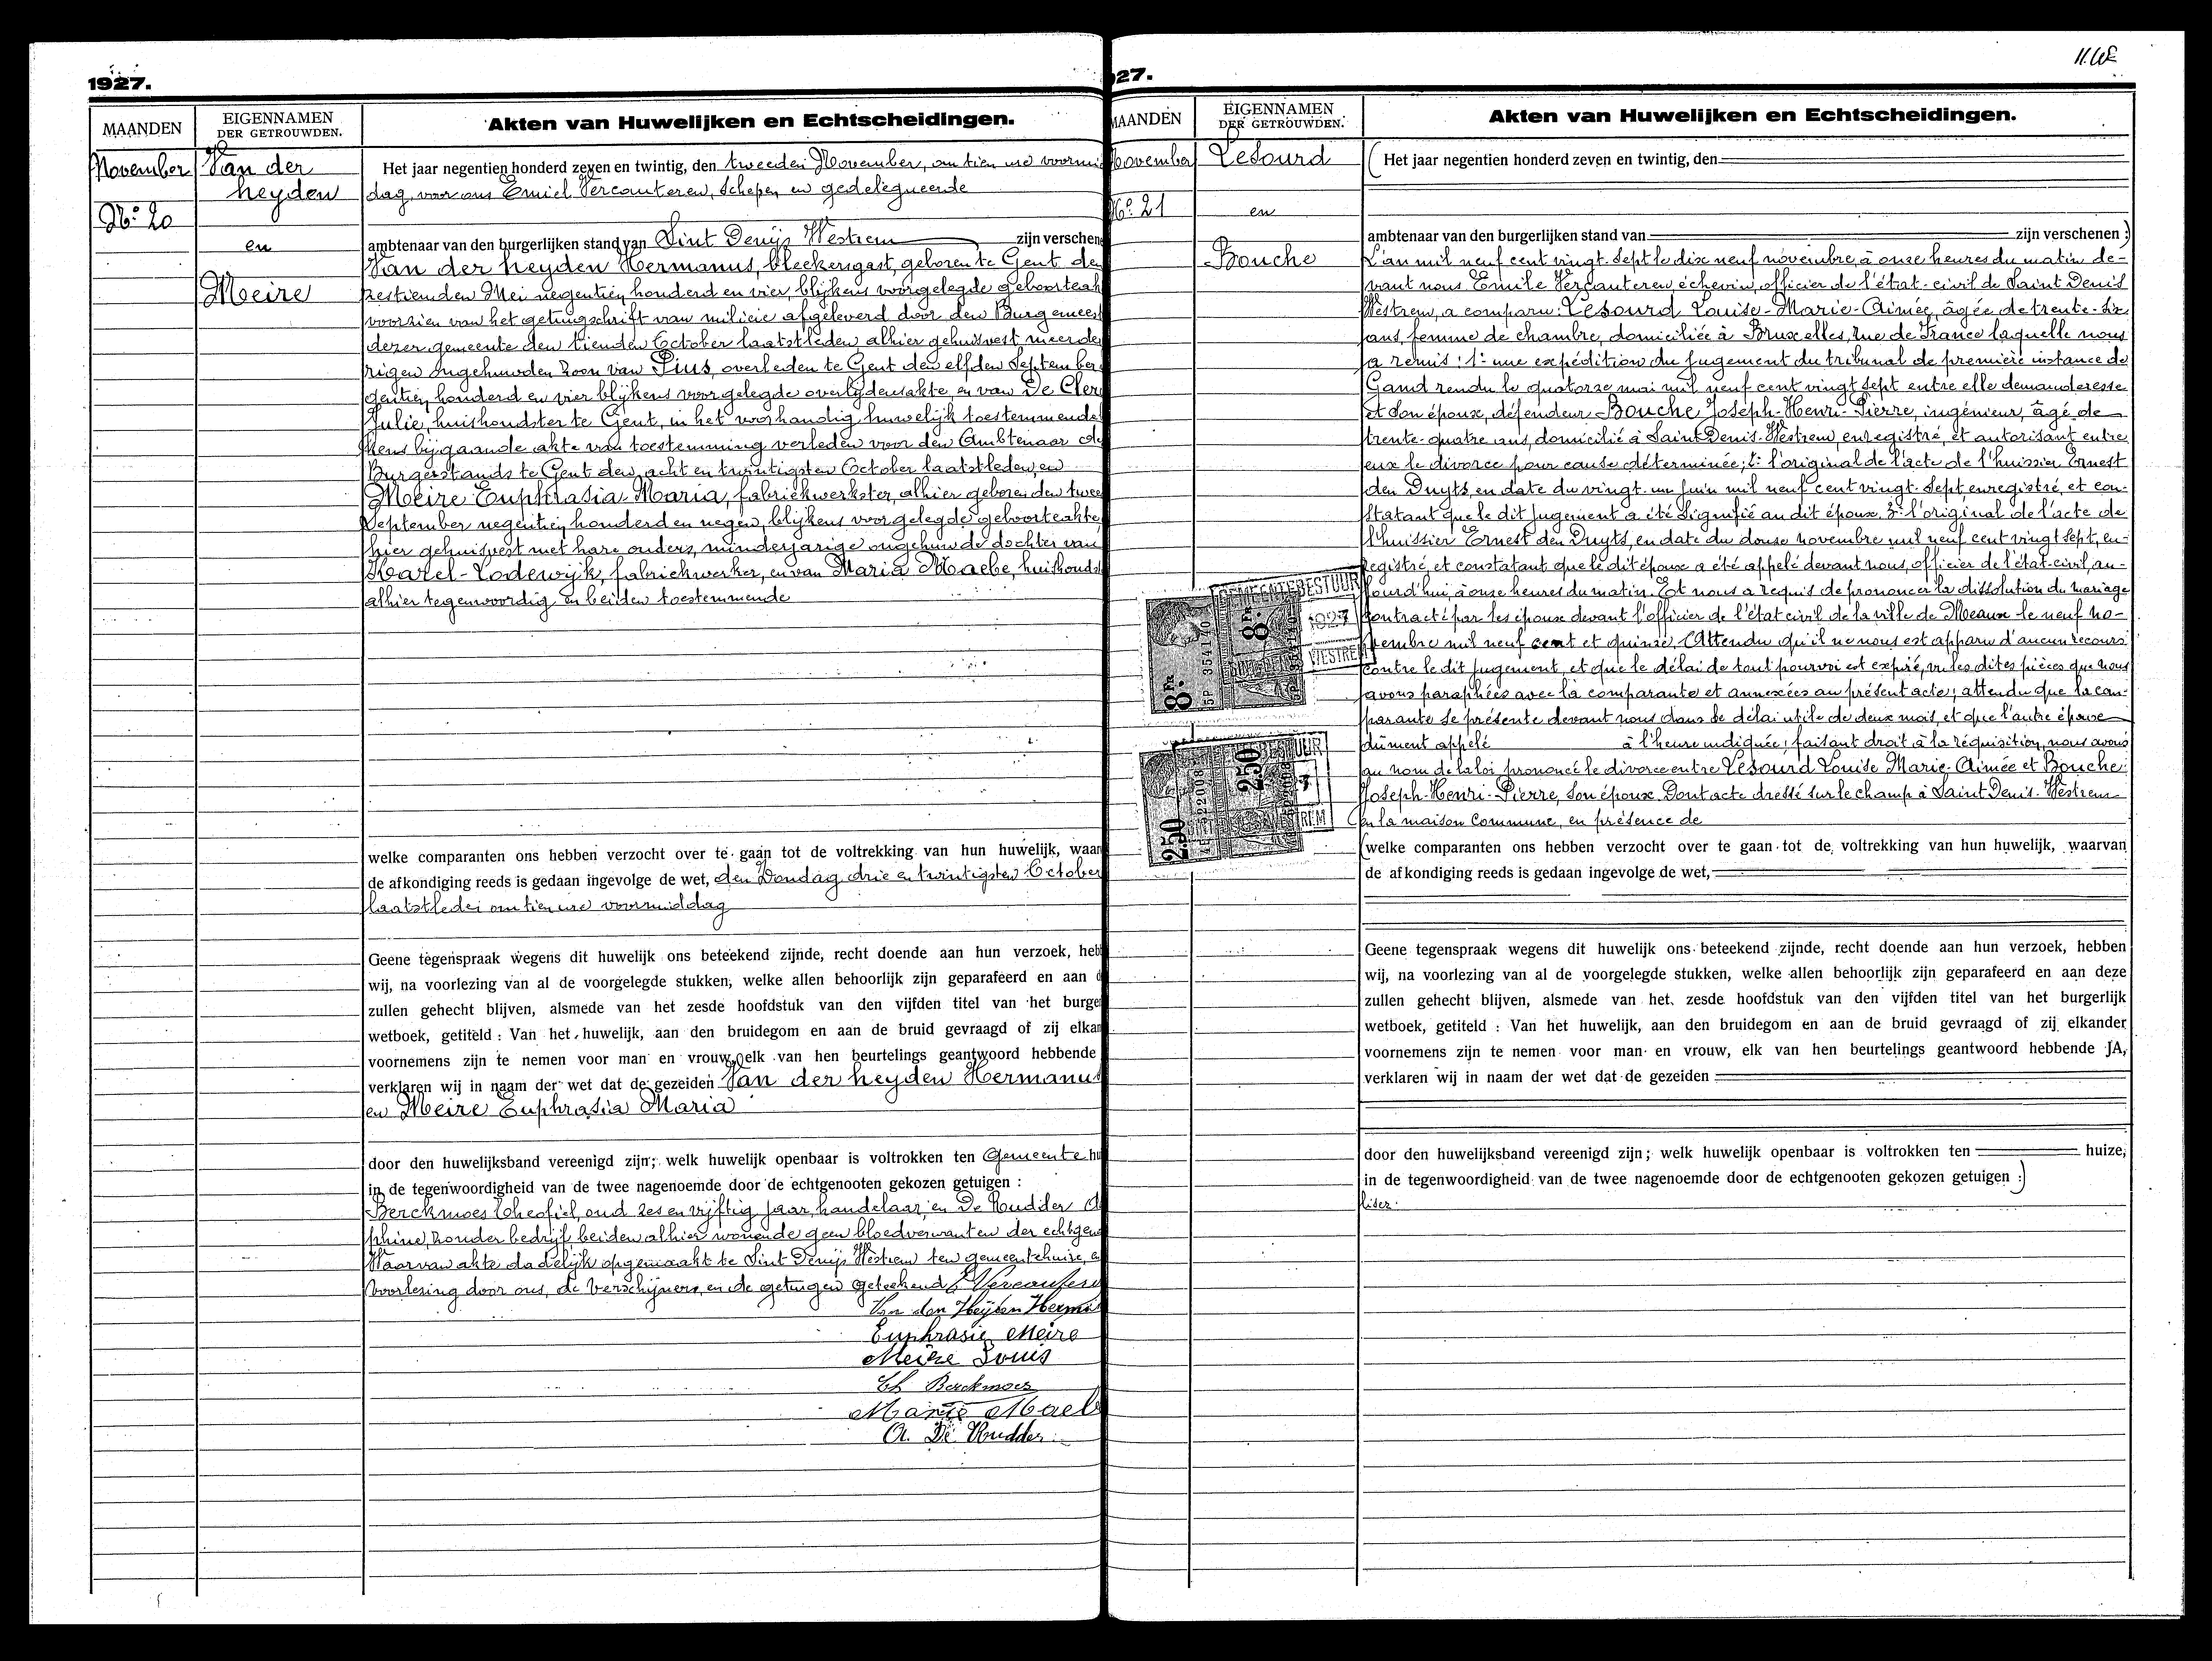 1927.
MAANDEN
EIGENNAMEN
DER GETROUWDEN.
Akten van Huwelijken en Echtscheidingen.
November
No. 20
Van der
heyden
en
Meire
Het jaar negentien honderd zeven en twintig, den tweeden November, om tien ure voormid
dag, voor ons Emiel Vercouteren, Schepen en gedelegueerde
ambtenaar van den burgerlijken stand van Sint Denijs Westrem zijn verschen
Van der heyden Hermanus, bleekersgast, geboren te Gent de
zestienden Mei negentien honderd en vier, blijkens voorgelegde geboorteak
voorzien van het getuigschrift van milicie afgeleverd door den Burgemees
dezer gemeente den tienden October laatstleden, alhier gehuisvest, meerde
rigen ongehuwden zoon van Pius, overleden te Gent den elfden September
gentien honderd en vier blijkens voorgelegde overlijdensakte, en van De Cler
Julie, huishoudster te Gent, in het voorhandig huwelijk toestemmende
kens bijgaande akte van toestemming verleden voor den Ambtenaar de
Burgerstands te Gent den acht en twintigsten October laatstleden, en
Meire Euphrasia Maria, fabriekwerkster, alhier geboren den twee
September negentien honderd en negen, blijkens voorgelegde geboorteakte
hier gehuisvest met hare ouders, minderjarige ongehuwde dochter van
Karel-Lodewijk, fabriekwerker, en van Maria Maebe, huishouds
alhier tegenwoordig en beiden toestemmende
welke comparanten ons hebben verzocht over te gaan tot de voltrekking van hun huwelijk, waar
de afkondiging reeds is gedaan ingevolge de wet, den Zondag drie en twintigsten October
laatstleden om tien ure voormiddag
Geene tegenspraak wegens dit huwelijk ons beteekend zijnde, recht doende aan hun verzoek, heb
wij, na voorlezing van al de voorgelegde stukken, welke allen behoorlijk zijn geparafeerd en aan d
zullen gehecht blijven, alsmede van het zesde hoofdstuk van den vijfden titel van het burge
wetboek, getiteld : Van het huwelijk, aan den bruidegom en aan de bruid gevraagd of zij elkan
voornemens zijn te nemen voor man en vrouw, elk van hen beurtelings geantwoord hebbende
verklaren wij in naam der wet dat de gezeiden Van der heyden Hermanus
en Meire Euphrasia Maria
door den huwelijksband vereenigd zijn; welk huwelijk openbaar is voltrokken ten Gemeente hu
in de tegenwoordigheid van de twee nagenoemde door de echtgenooten gekozen getuigen :
Berckmoes Theofiel, oud zes en vijftig jaar, handelaar, en De Rudder
phine, zonder bedrijf beiden alhier wonende geen bloedverwanten der echtgen
Waarvan akte dadelijk opgemaakt te Sint Denijs Westrem ten gemeentehuize, e
Voorlezing door ons, de Verschijners, en de getuigen geteekend E. Vercouteren
Van der Heyden Herma
Euphrasie Meire
Meire Louis
Th Berckmoes
Marie Maeb
A. De Rudder
27.
MAANDEN
EIGENNAMEN
DER GETROUWDEN.
Akten van Huwelijken en Echtscheidingen.
November
No. 21
Lesourd
en
Bouche
(Het jaar negentien honderd zeven en twintig, den
ambtenaar van den burgerlijken stand van zijn verschenen :)
L'an mil neuf cent vingt-sept le dix neuf novembre, à onze heures du matin de-
vant nous Emile Vercauteren, échevin, officier de l'état-civil de Saint Denis
Westrem, a comparu: Lesourd Louise-Marie-Aimée, âgée de trente-six
ans, femme de chambre, domiciliée à Bruxelles, rue de France laquelle nous
a remis: 1° une expédition du jugement du tribunal de première instance de
Gand rendu le quatorze mai mil neuf cent vingt sept entre elle demanderesse
et son époux, défendeur Bouche Joseph-Henri-Pierre, ingénieur, âgé de
trente-quatre ans, domicilié à Saint Denis-Westrem, enregistré, et autorisant entre
eux le divorce pour cause déterminée; 2° l'original de l'acte de l'huissier Ernest
den Duyts, en date du vingt-un juin mil neuf cent vingt-sept, enregistré, et con-
statant que le dit jugement a été signifié au dit époux. 3° l'original de l'acte de
l'huissier Ernest den Duyts, en date du douze novembre mil neuf cent vingt sept, en-
registré, et constatant que le dit époux a été appelé devant nous, officier de l'état-civil, au-
jourd'hui, à onze heures du matin. Et nous a requis de prononcer la dissolution du mariage
contracté par les époux devant l'officier de l'état civil de la ville de Meaux le neuf no-
vembre mil neuf cent et quinze. Attendu qu'il ne nous est apparu d'aucun recours
contre le dit jugement, et que le délai de tout pourvoi est expiré, vu les dites pièces que nous
avons paraphées avec la comparante et annexées au présent acte; attendu que la com-
parante se présente devant nous dans le délai utile de deux mois, et que l'autre épouse
dûment appelé à l'heure indiquée; faisant droit à la réquisition, nous avons
au nom de la loi prononcé le divorce entre Lesourd Louise Marie-Aimée et Bouche
Joseph-Henri-Pierre, son époux. Dont acte dressé sur le champ à Saint Denis-Westrem
en la maison Commune, en présence de
(welke comparanten ons hebben verzocht over te gaan tot de voltrekking van hun huwelijk, waarvan
de afkondiging reeds is gedaan ingevolge de wet,
Geene tegenspraak wegens dit huwelijk ons beteekend zijnde, recht doende aan hun verzoek, hebben
wij, na voorlezing van al de voorgelegde stukken, welke allen behoorlijk zijn geparafeerd en aan deze
zullen gehecht blijven, alsmede van het zesde hoofdstuk van den vijfden titel van het burgerlijk
wetboek, getiteld : Van het huwelijk, aan den bruidegom en aan de bruid gevraagd of zij elkander
voornemens zijn te nemen voor man en vrouw, elk van hen beurtelings geantwoord hebbende JA,
verklaren wij in naam der wet dat de gezeiden
door den huwelijksband vereenigd zijn; welk huwelijk openbaar is voltrokken ten huize,
in de tegenwoordigheid van de twee nagenoemde door de echtgenooten gekozen getuigen :)
GEMEENTEBESTUUR
1927
WESTREM
8 Fr.
8 Fr.
5P 354170
250
250